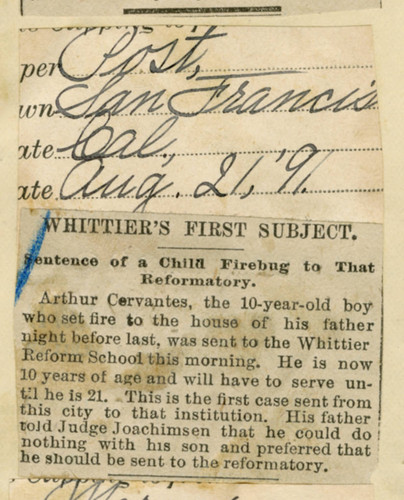 per Post,
wn San Francis
ate Cal,
ate Aug. 21, '91.
WHITTIER'S FIRST SUBJECT.
Sentence of a Child Firebug to That
Reformatory.
Arthur Cervantes, the 10-year-old boy
who set fire to the house of his father
night before last, was sent to the Whittier
Reform School this morning. He is now
10 years of age and will have to serve un-
til he is 21. This is the first case sent from
this city to that institution. His father
told Judge Joachimsen that he could do
nothing with his son and preferred that
he should be sent to the reformatory.